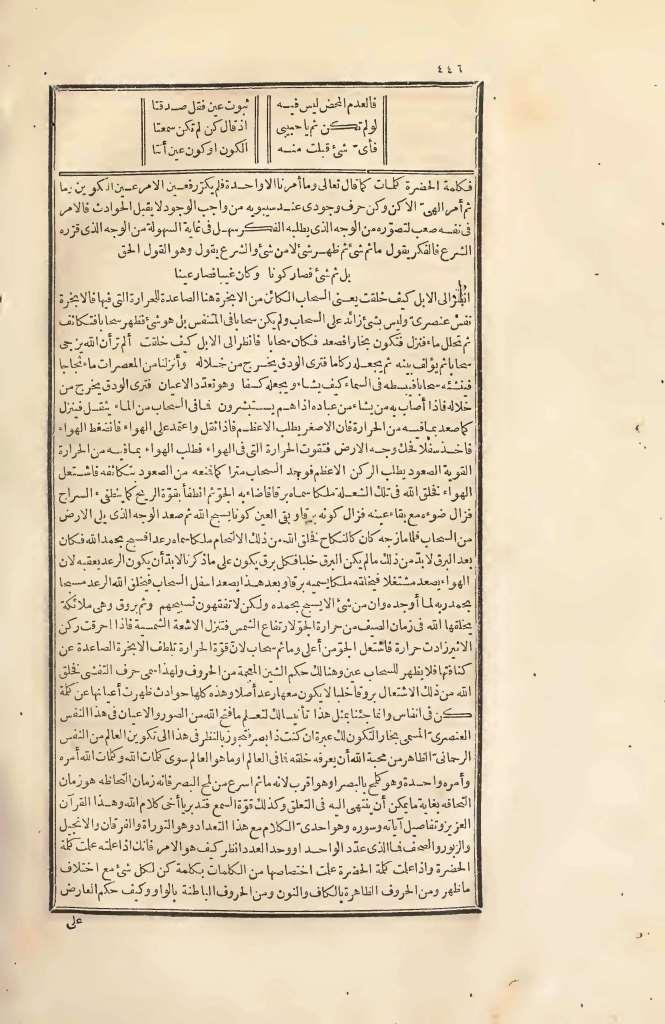 ٤٤٦
فالعدم المحض ليس فيه ثبوت عين فقل صدقتا
لو لم تكن ثم يا حبيبي اذ قال كن لم تكن سمعتا
فأىّ شئ قبلت منه الكون او كون عين أنتا
فكلمة الحضرة كلمات كما قال تعالى وما أمرنا الا واحدة فلم يكرر فعين الامر عين التكوين وما
ثم أمر الهىّ الا كن وكن حرف وجودى عند سيبويه من واجب الوجود لا يقبل الحوادث فالامر
فى نفسه صعب لتصوّره من الوجه الذى يطلبه الفكر سهل فى غاية السهولة من الوجه الذى قرره
الشرع فالفكر يقول ما ثم شئ ثم ظهر شئ لا من شئ والشرع يقول وهو القول الحق
بل ثم شئ فصار كونا وكان غيبا فصار عينا
انظر الى الابل كيف خلقت يعنى السحاب الكائن من الابخرة هنا الصاعدة للحرارة التى فيها فالابخرة
نفس عنصرى وليس بشئ زائد على السحاب ولم يكن سحابا فى المتنفس بل هو شئ فظهر سحابا فتكاثف
ثم تحلل ماء فنزل فتكون بخارا فصعد فكان سحابا فانظر الى الابل كيف خلقت ألم تر أن الله يزجى
سحابا ثم يؤلف بينه ثم يجعله ركاما فترى الودق يخرج من خلاله وأنزلنا من المعصرات ماء ثجاجا
فينشئه سحابا فيبسطه فى السماء كيف يشاء ويجعله كسفا وهو تعدد الاعيان فترى الودق يخرج من
خلاله فاذا أصاب به من يشاء من عباده اذا هم يستبشرون فما فى السحاب من الماء يثقل فينزل
كما صعد بما فيه من الحرارة فان الاصغر يطلب الاعظم فاذا ثقل واعتمد على الهواء فانضغط الهواء
فاخذ سفلا فحك وجه الارض فتقوت الحرارة التى فى الهواء فطلب الهواء بما فيه من الحرارة
القوية الصعود يطلب الركن الاعظم فوجد السحاب متراكما فمنعه من الصعود تكاثفه فاشتعل
الهواء فخلق الله فى تلك الشعلة ملكا سماه برقا فاضاء به الجوّ ثم انطفأ بقوة الريح كما ينطفئ السراج
فزال ضوءه مع بقاء عينه فزال كونه برقا وبقى العين كونا يسبح الله ثم صعد الوجه الذى يلى الارض
من السحاب فلما مازجه كان كالنكاح فخلق الله من ذلك الالتحام ملكا سماه رعدا فسبح بحمد الله فكان
بعد البرق لا بدّ من ذلك ما لم يكن البرق خلبا فكل برق يكون على ما ذكرنا لا بدّ أن يكون الرعد يعقبه لان
الهواء يصعد مشتعلا فيخلقه ملكا يسميه برقا وبعد هذا يصعد اسفل السحاب فيخلق الله الرعد مسبحا
بحمد ربه لما أوجده وان من شئ الا يسبح بحمده ولكن لا تفقهون تسبيحهم وثم بروق وهى ملائكة
يخلقها الله فى زمان الصيف من حرارة الجوّ لارتفاع الشمس فتنزل الاشعة الشمسية فاذا احرقت ركن
الاثير زادت حرارة فاشتعل الجوّ من أعلى وما ثم سحاب لانّ قوة الحرارة تلطف الابخرة الصاعدة عن
كثافتها فلا يظهر للسحاب عين وهنالك حكم الشين المعجمة من الحروف ولهذا سمى حرف التفشى فخلق
الله من ذلك الاشتعال بروقا خلبا لا يكون معها رعد أصلا وهذه كلها حوادث ظهرت أعيانها عن كلمة
كن فى انفاس وانما جئنا بمثل هذا تأنيسا لك لتعلم ما فتح الله من الصور والاعيان فى هذا النفس
العنصرىّ المسمى بخار التكون لك عبرة ان كنت ذا بصر فتجوز بالنظر فى هذا الى تكوين العالم من النفس
الرحمانىّ الظاهر من محبة الله أن يعرفه خلقه فما فى العالم او ما هو العالم سوى كلمات الله وكلمات الله أمره
وأمره واحدة وهو كلمح بالبصر او هو اقرب لانه ما ثم اسرع من لمح البصر فانه زمان التحاظه هو زمان
التحاقه بغاية ما يمكن أن ينتهى اليه فى التعلق وكذلك قوة السمع فتدبر يا أخى كلام الله وهذا القرآن
العزيز وتفاصيل آياته وسوره وهو احدىّ الكلام مع هذا التعداد وهو التوراة والفرقان والانجيل
والزبور والصحف فما الذى عدّد الواحد او وحد العدد انظر كيف هو الامر فانك اذا علمته علمت كلمة
الحضرة واذا علمت كلمة الحضرة علمت اختصاصها من الكلمات بكلمة كن لكل شئ مع اختلاف
ما ظهر ومن الحروف الظاهرة بالكاف والنون ومن الحروف الباطنة بالواو وكيف حكم العارض
على